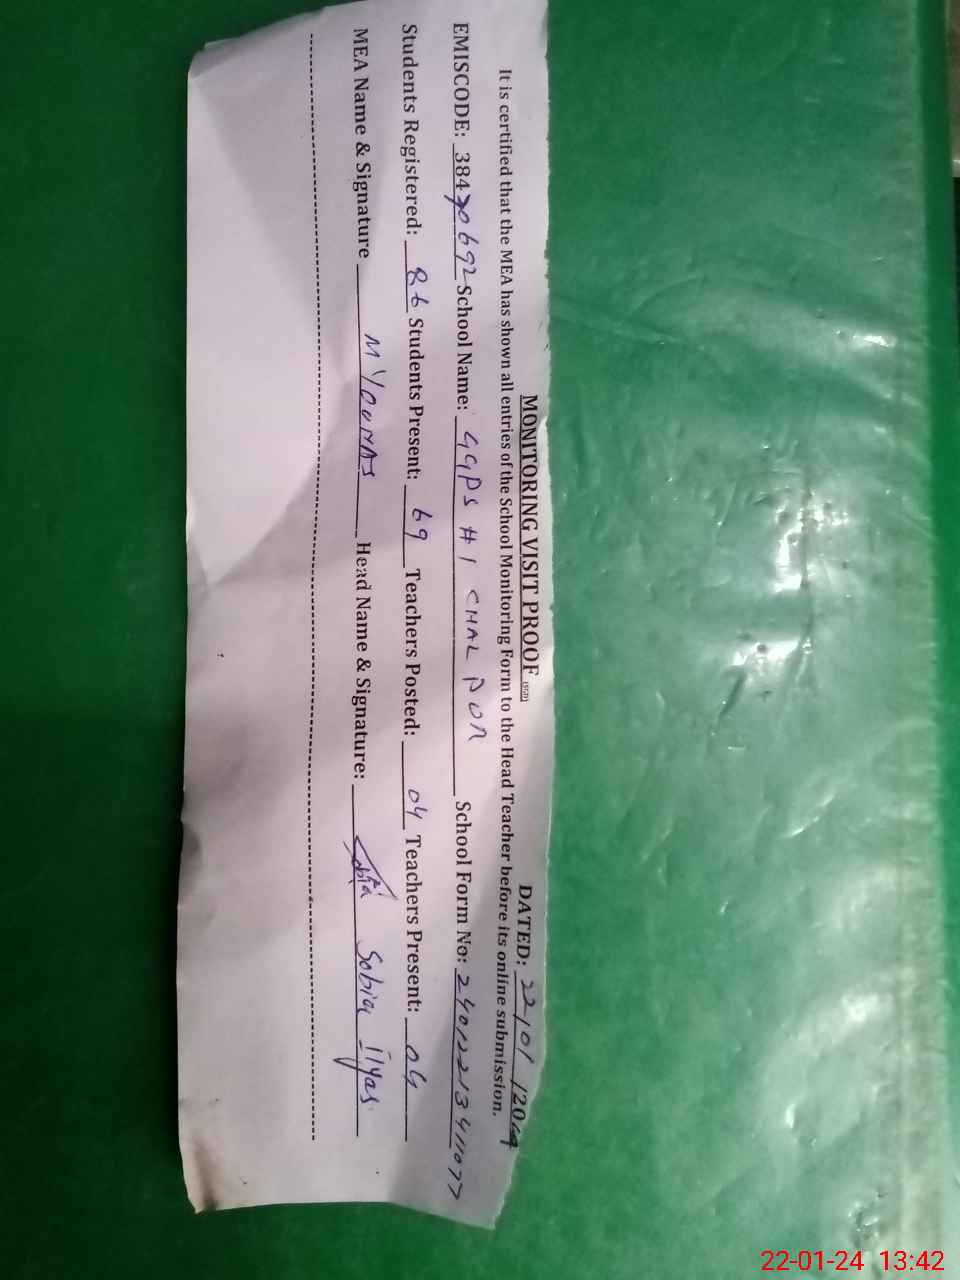 MONITORING VISIT PROOF (SGD) DATED: 22/01/2024
It is certified that the MEA has shown all entries of the School Monitoring Form to the Head Teacher before its online submission.
EMISCODE: 38470692 School Name: GGPS #1 CHAL POR School Form No: 240122134111077
Students Registered: 86 Students Present: 69 Teachers Posted: 04 Teachers Present: 04
MEA Name & Signature M YOUNAS Head Name & Signature: Sobia Ilyas
22-01-24 13:42